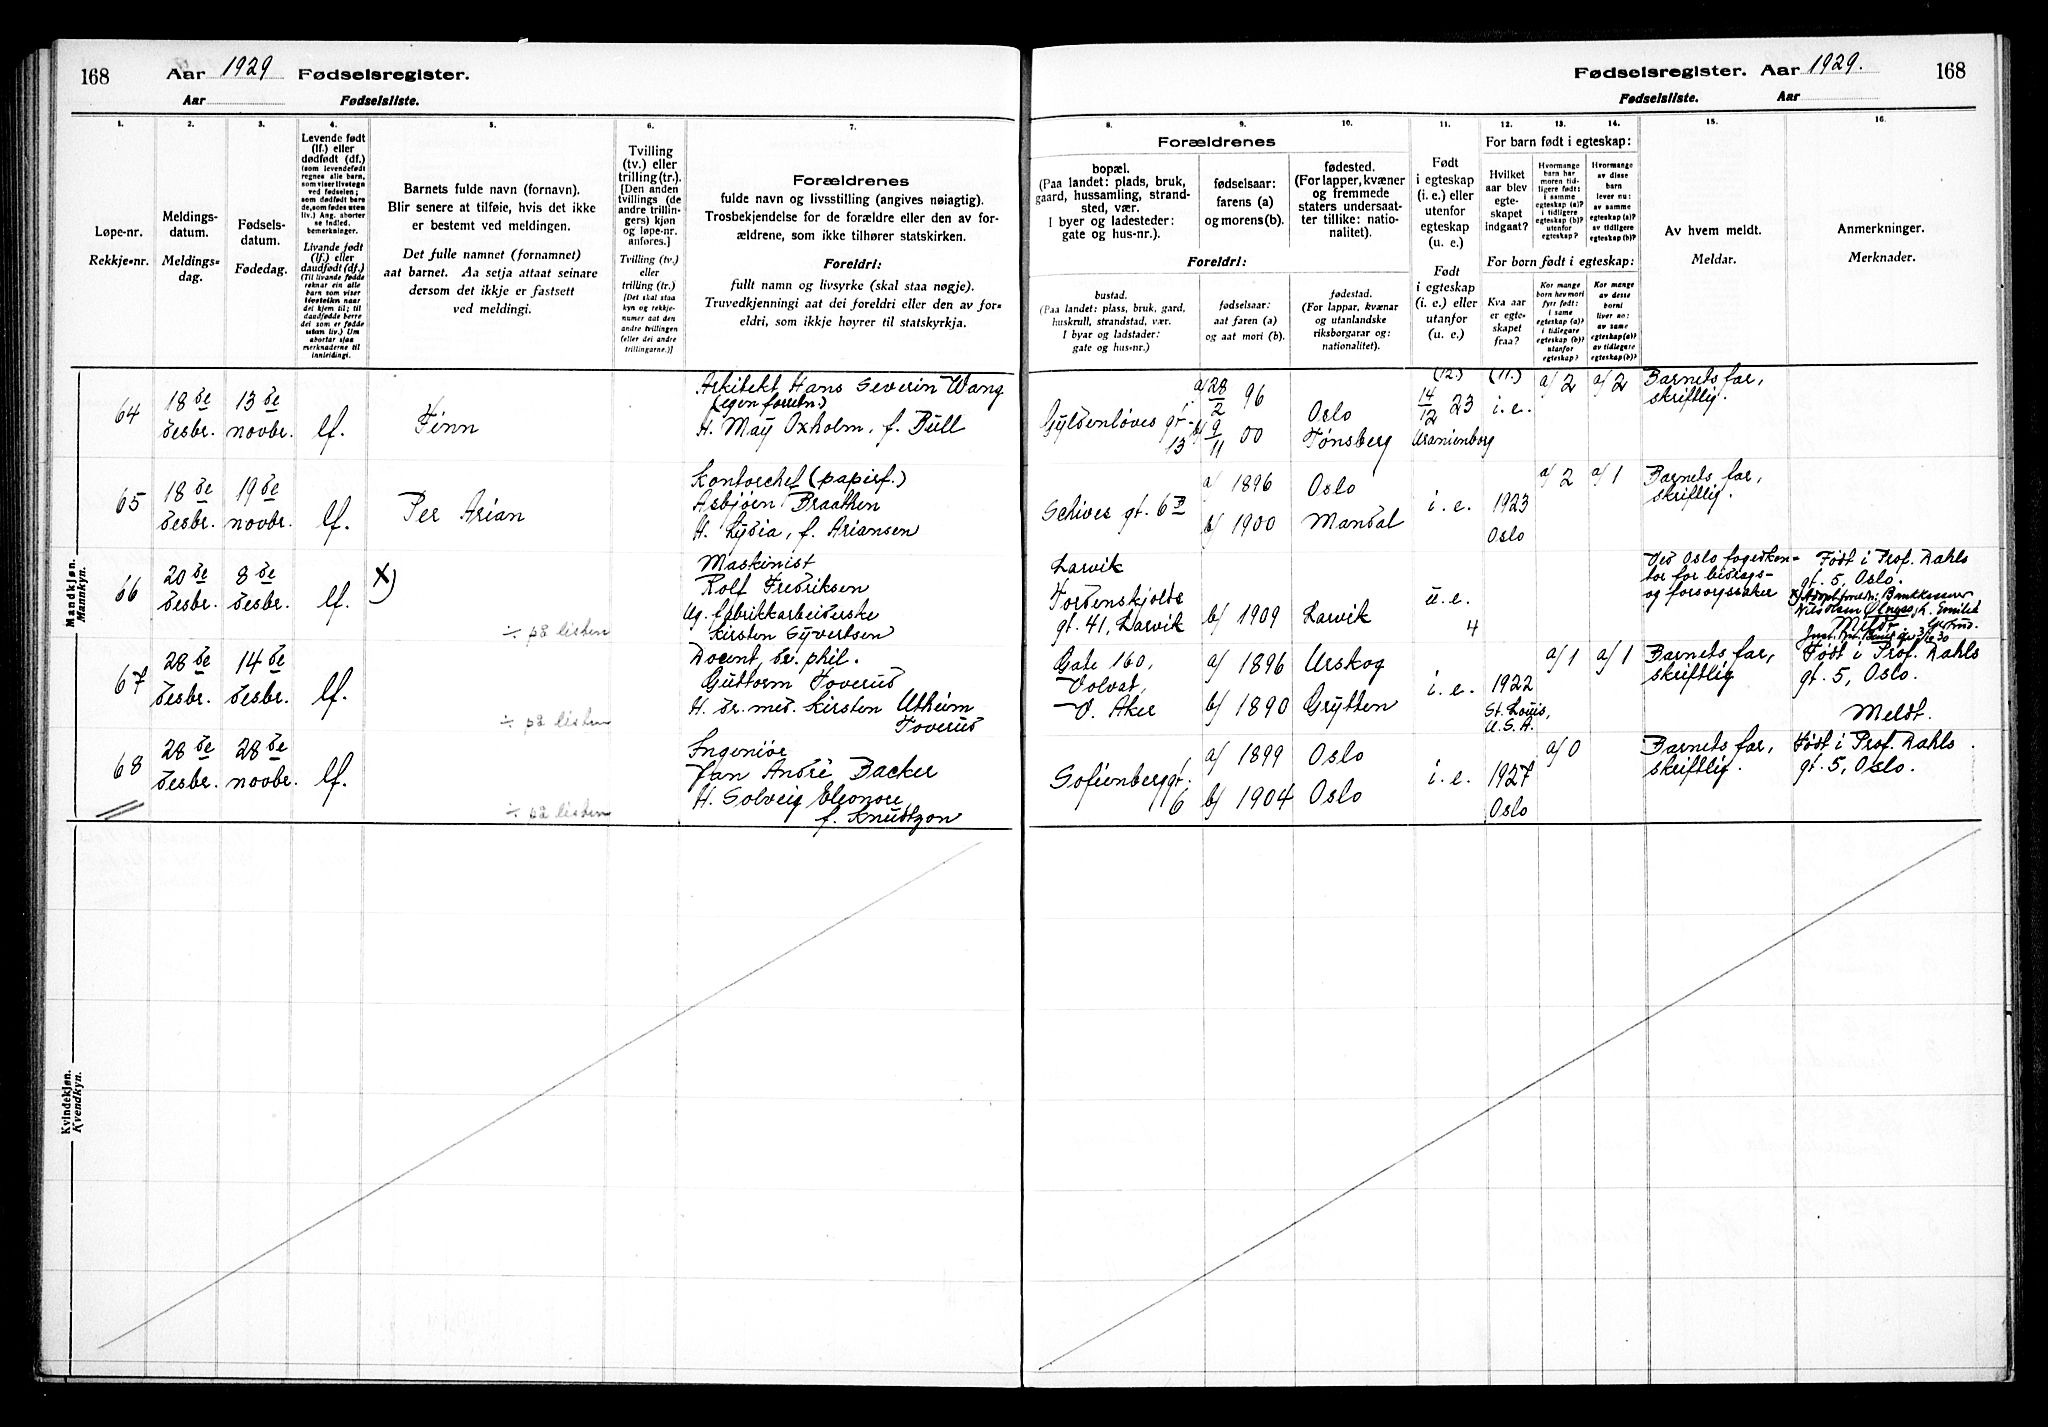 168 Aar 1929 Fødselsregister.
Aar Fødselsliste.
1.
2.
3.
4.
5.
6.
7.
Løpe-nr.
Rekkje-nr.
Meldings-
datum.
Meldings-
dag.
Fødsels-
datum.
Fødedag.
Levende født
(lf.) eller
dødfødt (df.)
(som levendefødt
regnes alle barn,
som viser livstegn
ved fødselen;
som dødfødt bare
de, som fødes uten
liv.) Ang. aborter
se indled.
bemerkninger.
Livande født
(lf.) eller
daudfødt (df.)
(Til livande fødde
reknar ein alle
barn som viser
livsteikn naar
dei kjem til; til
daudfødde berre
dei som er fødde
utan liv.) Um
abortar sjaa
merknaderne til
innleidingi.
Barnets fulde navn (fornavn).
Blir senere at tilføie, hvis det ikke
er bestemt ved meldingen.
Det fulle namnet (fornamnet)
aat barnet. Aa setja attaat seinare
dersom det ikkje er fastsett
ved meldingi.
Tvilling
(tv.) eller
trilling (tr.).
[Den anden
tvillings (de
andre trillin-
gers) kjøn
og løpe-nr.
anføres.]
Tvilling (tv.)
eller
trilling (tr.)
[Det skal staa
kyn og rekkje-
numer aat den
andre tvillingen
(eller dei andre
trillingarne.)]
Forældrenes
fulde navn og livsstilling (angives nøiagtig).
Trosbekjendelse for de forældre eller den av for-
ældrene, som ikke tilhører statskirken.
Foreldri:
fullt namn og livsyrke (skal staa nøgje).
Truvedkjenningi aat dei foreldri eller den av for-
eldri, som ikkje høyrer til statskyrkja.
Mandkjøn.
Mannkyn.
64
18 de
desbr.
13 de
novbr.
lf.
Finn
Arkitekt Hans Severin Wang
(egen forretn.)
H. May Oxholm, f. Bull
65
18 de
desbr.
19 de
novbr.
lf.
Per Arian
Kontorchef (papirf.)
Asbjørn Braathen
H. Lydia, f. Ariansen
66
20 de
desbr.
8 de
desbr.
lf.
X)
÷ på listen
Maskinist
Rolf Fredriksen
Ug. fabrikkarbeiderske
Kirsten Syvertsen
67
28 de
desbr.
14 de
desbr.
lf.
÷ på listen
Docent, dr. phil.
Guttorm Toverud
H. dr. med. Kirsten Utheim
Toverud
68
28 de
desbr.
28 de
novbr.
lf.
÷ på listen
Ingeniør
Jan André Backer
H. Solveig Eleonore,
f. Knudtzon
Kvindekjøn.
Kvendkyn.
Fødselsregister. Aar 1929. 168
Fødselsliste. Aar
8.
9.
10.
11.
12.
13.
14.
15.
16.
Forældrenes
bopæl.
(Paa landet: plads, bruk,
gaard, hussamling, strand-
sted, vær.
I byer og ladesteder:
gate og hus-nr.).
fødselsaar:
farens (a)
og morens (b).
fødested.
(For lapper, kvæner
og fremmede
staters undersaat-
ter tillike: natio-
nalitet).
Foreldri:
bustad.
(Paa landet: plass, bruk, gard,
huskrull, strandstad, vær.
I byar og ladstader:
gate og hus-nr.)
fødselsaar:
aat faren (a)
og aat mori (b).
fødestad.
(For lappar, kvænar
og utanlandske
riksborgarar og:
nationalitet).
Født
i egteskap
(i. e.) eller
utenfor
egteskap
(u. e.)
Født
i egteskap
(i. e.) eller
utanfor
(u. e.)
For barn født i egteskap:
Hvilket
aar blev
egte-
skapet
indgaat?
Hvormange
barn har
moren tid-
ligere født:
i samme
egteskap (a)?
i tidligere
egteskap (b)?
utenfor
egteskap?
Hvormange
av disse
barn
lever nu:
av samme
egteskap (a)?
av tidligere
egteskap (b)?
For born født i egteskap:
Kva aar
er egte-
skapet
fraa?
Kor mange
born hev mori
fyrr født:
i same
egteskap (a)?
i tidlegare
egteskap (b)?
utanfor
egteskap?
Kor mange
av desse
borni
liver no:
av same
egteskap (a)?
av tidlegare
egteskap (b)?
Av hvem meldt.
Meldar.
Anmerkninger.
Merknader.
Gyldenløves gt.
13
a/ 28/2 96
b/ 9/11 00
Oslo
Tønsberg
(12.)
14/12 23
Uranienborg
(11.)
i. e.
a/2
a/2
Barnets far,
skriftlig.
Schives gt. 6 B
a/ 1896
b/ 1900
Oslo
Mandal
i. e.
1923
Oslo
a/2
a/1
Barnets far,
skriftlig.
Larvik
Tordenskjolds
gt. 41, Larvik
b/ 1909
Larvik
u. e.
4
Ved Oslo fogedkon-
tor for bidrags-
og forsorgssaker
Født i Prof. Dahls
gt. 5, Oslo.
Meldt
Gate 160,
Volvat,
V. Aker
a/ 1896
b/ 1890
Urskog
Grytten
i. e.
1922
St. Louis,
U. S. A.
a/1
a/1
Barnets far,
skriftlig
Født i Prof. Dahls
gt. 5, Oslo.
Meldt.
Sofienberggt.
6
a/ 1899
b/ 1904
Oslo
Oslo
i. e.
1927
Oslo
a/0
Barnets far,
skriftlig.
Født i Prof. Dahls
gt. 5, Oslo.